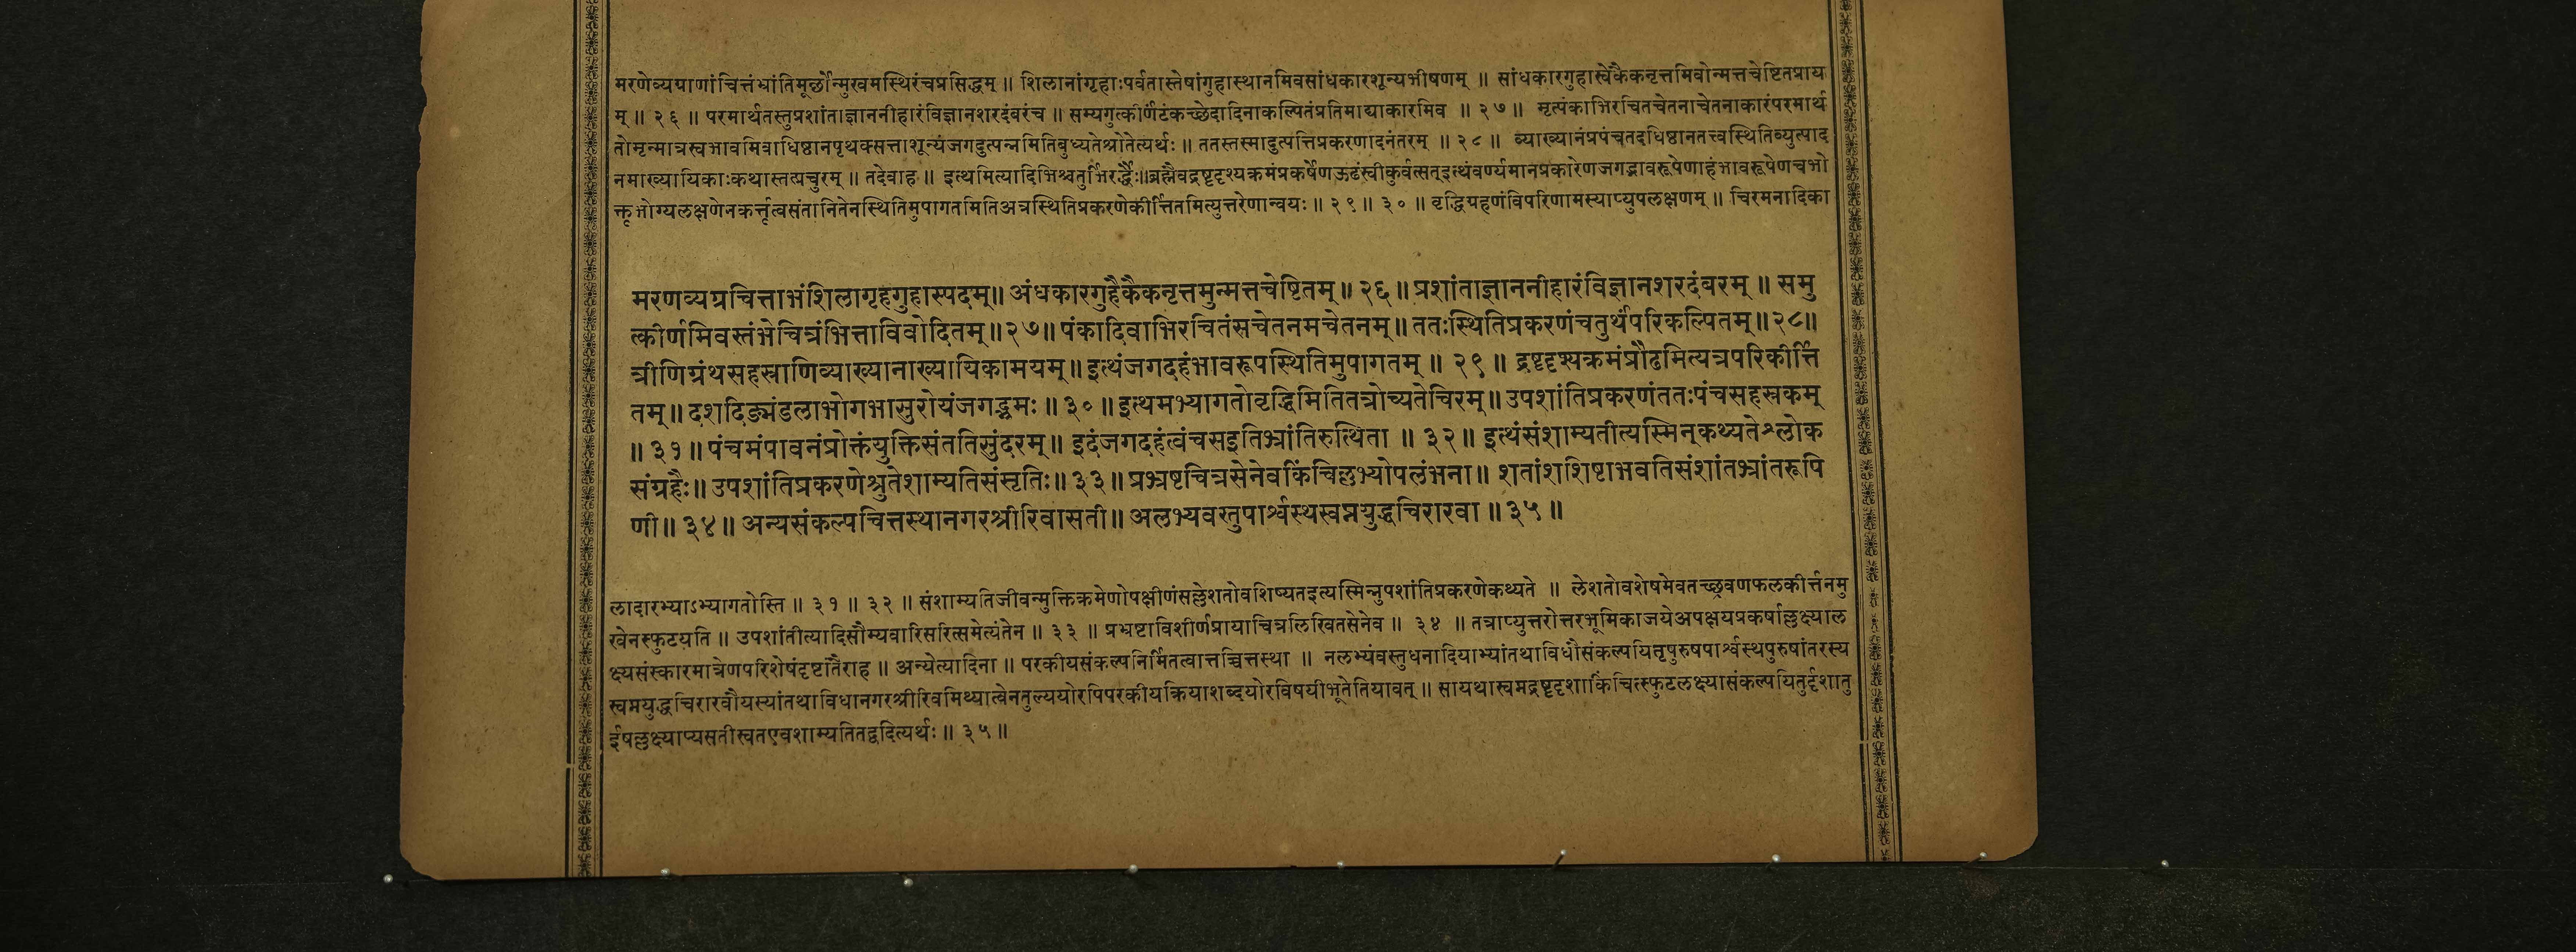 मरणेव्यग्राणांचित्तंभ्रांतिमूर्छोन्मुखमस्थिरंचप्रसिद्धम् ॥ शिलानांगृहाःपर्वतास्तेषांगुहास्थानमिवसांधकारशून्यभीषणम् ॥ सांधकारगुहास्वेकैकनृत्तमिवोन्मत्तचेष्टितप्राय
म् ॥ २६ ॥ परमार्थतस्तुप्रशांताज्ञाननीहारंविज्ञानशरदंबरंच ॥ सम्यगुत्कीर्णंटंकच्छेदादिनाकल्पितंप्रतिमाद्याकारमिव ॥ २७ ॥ मृत्पंकाभिरचितचेतनाचेतनाकारंपरमार्थ
तोमृन्मात्रस्वभावमिवाधिष्ठानपृथक्सत्ताशून्यंजगदुत्पन्नमितिबुध्यतेश्रोतेत्यर्थः ॥ ततस्तस्मादुत्पत्तिप्रकरणादनंतरम् ॥ २८ ॥ व्याख्यानंप्रपंचतदधिष्ठानतत्त्वस्थितिव्युत्पाद
नमाख्यायिकाःकथास्तत्प्रचुरम् ॥ तदेवाह ॥ इत्थमित्यादिभिश्चतुर्भिरर्द्धैः॥ब्रह्मैवद्रष्टृदृश्यक्रमंप्रकर्षेणऊढंस्वीकुर्वत्सत्इत्थंवर्ण्यमानप्रकारेणजगद्भावरूपेणाहंभावरूपेणचभो
क्तृभोग्यलक्षणेनकर्त्तृत्वसंतानितेनस्थितिमुपागतमितिअत्रस्थितिप्रकरणेकीर्त्तितमित्युत्तरेणान्वयः ॥ २९ ॥ ३० ॥ वृद्धिग्रहणंविपरिणामस्याप्युपलक्षणम् ॥ चिरमनादिका
मरणव्यग्रचित्ताभंशिलागृहगुहास्पदम्॥ अंधकारगुहैकैकनृत्तमुन्मत्तचेष्टितम् ॥ २६ ॥ प्रशांताज्ञाननीहारंविज्ञानशरदंबरम् ॥ समु
त्कीर्णमिवस्तंभेचित्रंभित्ताविवोदितम् ॥२७॥ पंकादिवाभिरचितंसचेतनमचेतनम् ॥ ततःस्थितिप्रकरणंचतुर्थंपरिकल्पितम् ॥२८॥
त्रीणिग्रंथसहस्राणिव्याख्यानाख्यायिकामयम् ॥ इत्थंजगदहंभावरूपस्थितिमुपागतम् ॥ २९ ॥ द्रष्टृदृश्यक्रमंप्रौढमित्यत्रपरिकीर्त्ति
तम् ॥ दशदिङ्मंडलाभोगभासुरोयंजगद्भ्रमः ॥ ३० ॥ इत्थमभ्यागतोवृद्धिमितितत्रोच्यतेचिरम् ॥ उपशांतिप्रकरणंततःपंचसहस्रकम्
॥ ३१ ॥ पंचमंपावनंप्रोक्तंयुक्तिसंततिसुंदरम् ॥ इदंजगदहंत्वंचसइतिभ्रांतिरुत्थिता ॥ ३२ ॥ इत्थंसंशाम्यतीत्यस्मिन्कथ्यतेश्लोक
संग्रहैः ॥ उपशांतिप्रकरणेश्रुतेशाम्यतिसंसृतिः ॥ ३३ ॥ प्रभ्रष्टचित्रसेनेवकिंचिल्लभ्योपलंभना ॥ शतांशशिष्टाभवतिसंशांतभ्रांतरूपि
णी ॥ ३४ ॥ अन्यसंकल्पचित्तस्थानगरश्रीरिवासती ॥ अलभ्यवस्तुपार्श्वस्थस्वप्नयुद्धचिरारवा ॥ ३५ ॥
लादारभ्याऽभ्यागतोस्ति ॥ ३१ ॥ ३२ ॥ संशाम्यतिजीवन्मुक्तिक्रमेणोपक्षीणंसल्लेशतोवशिष्यतइत्यस्मिन्नुपशांतिप्रकरणेकथ्यते ॥ लेशतोवशेषमेवतच्छ्रवणफलकीर्त्तनमु
खेनस्फुटयति ॥ उपशांतीत्यादिसौम्यवारिसरित्समेत्यंतेन ॥ ३३ ॥ प्रभ्रष्टाविशीर्णप्रायाचित्रलिखितसेनेव ॥ ३४ ॥ तत्राप्युत्तरोत्तरभूमिकाजयेअपक्षयप्रकर्षाल्लक्ष्याल
क्ष्यसंस्कारमात्रेणपरिशेषंदृष्टांतैराह ॥ अन्येत्यादिना ॥ परकीयसंकल्पनिर्मितत्वात्तच्चित्तस्था ॥ नलभ्यंवस्तुधनादियाभ्यांतथाविधौसंकल्पयितृपुरुषपार्श्वस्थपुरुषांतरस्य
स्वप्नयुद्धचिरारवौयस्यांतथाविधानगरश्रीरिवमिथ्यात्वेनतुल्ययोरपिपरकीयक्रियाशब्दयोरविषयीभूतेतियावत् ॥ सायथास्वप्नद्रष्टृदृशाकिंचित्स्फुटलक्ष्यासंकल्पयितुर्दृशातु
ईषल्लक्ष्याप्यसतीस्वतएवशाम्यतितद्वदित्यर्थः ॥ ३५ ॥